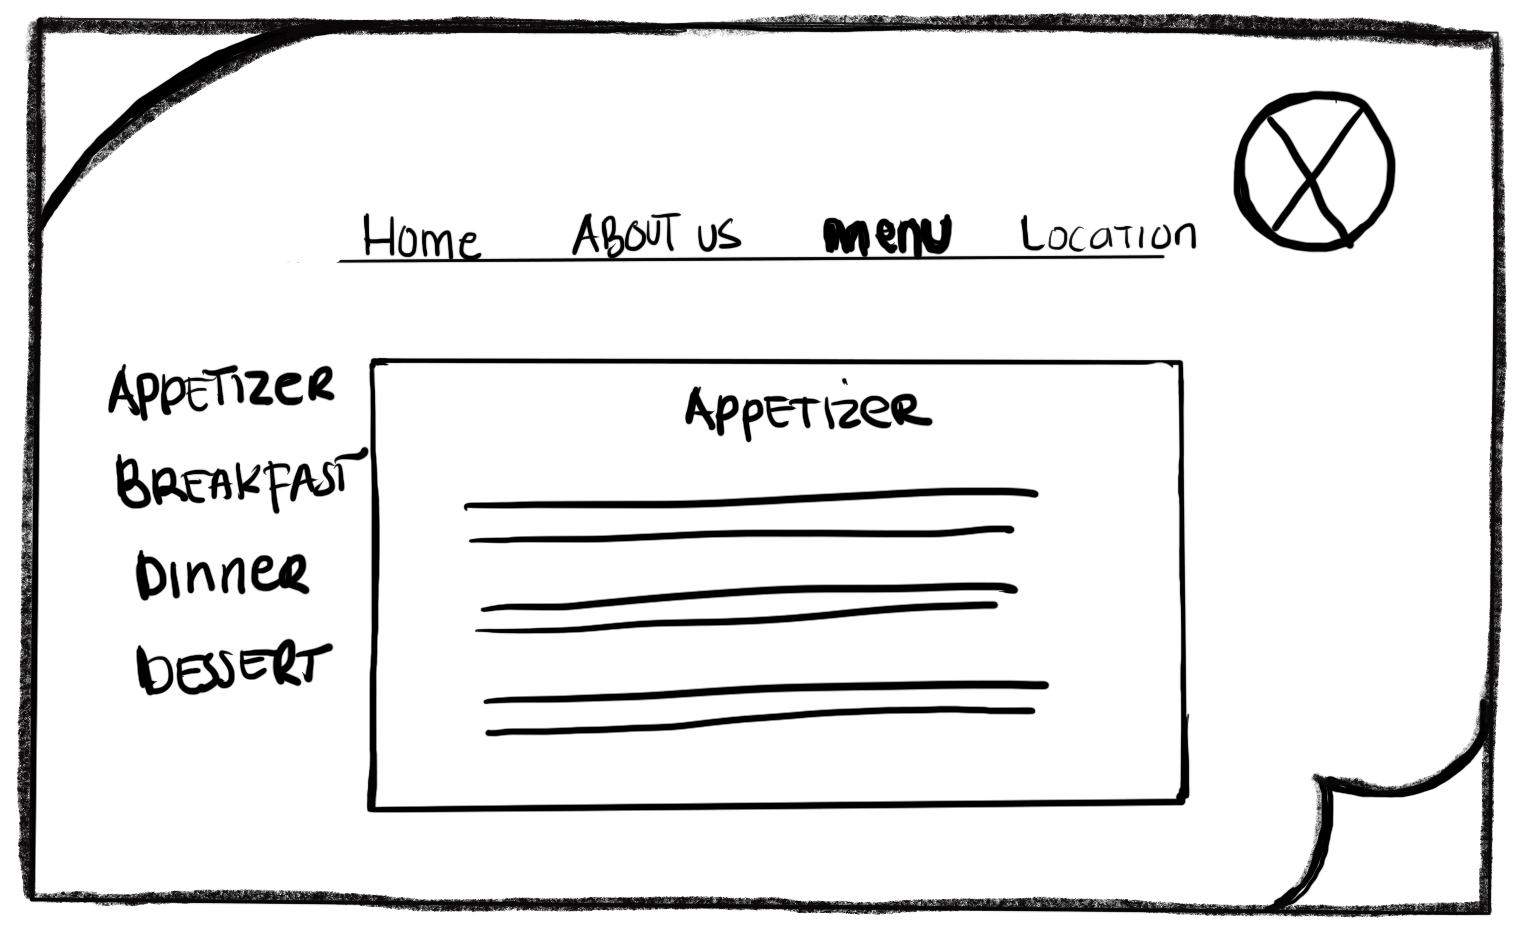 Home ABOUT US menu Location
APPETIZER
BREAKFAST
DINNER
DESSERT
APPETIZER